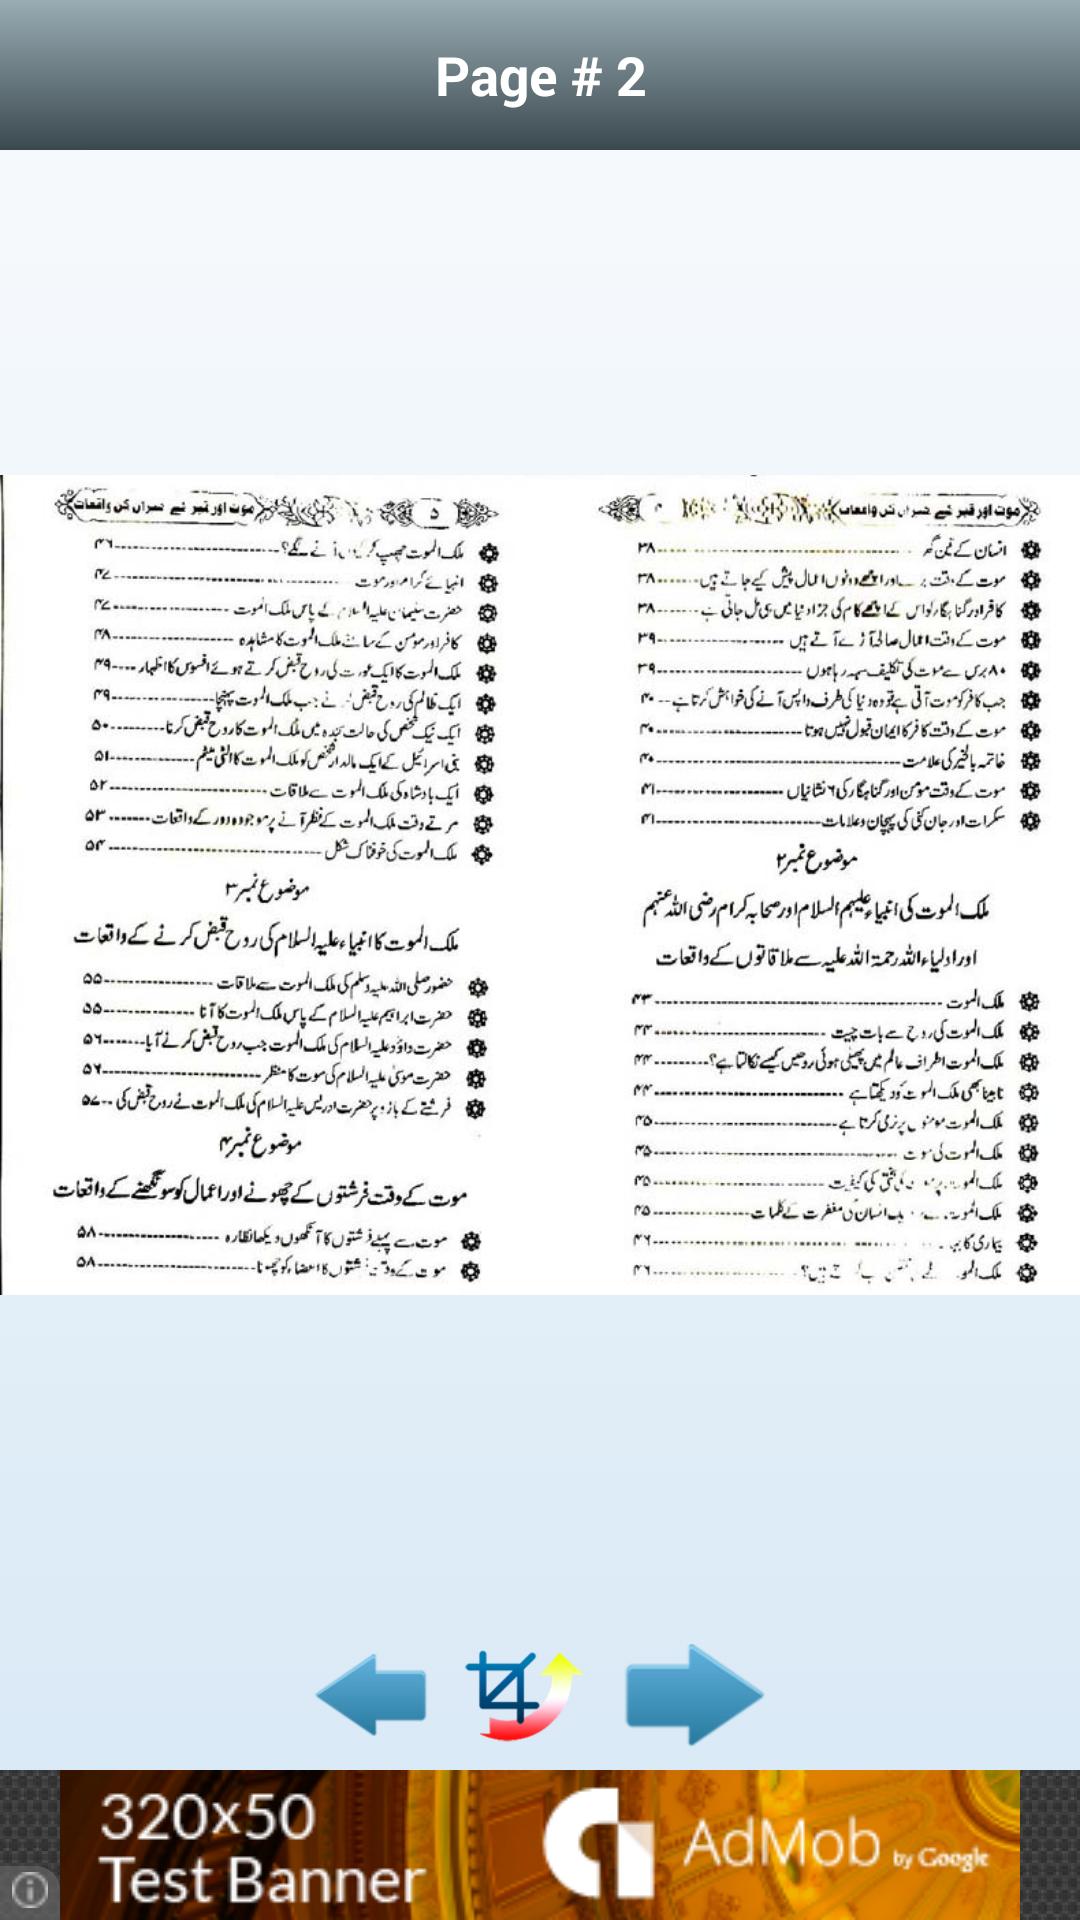 Page # 2
موت اور قبر کے حیران کن واقعات
انسان کے تین گھر ۳۸
موت کے وقت برے اور اچھے دونوں اعمال پیش کیے جاتے ہیں ۳۸
کافر اور گناہگار کو اس کے اچھے کام کی جزا دنیا میں ہی مل جاتی ہے ۳۸
موت کے وقت اعمال صالحہ آڑے آتے ہیں ۳۹
۸۰ برس سے موت کی تکلیف سہہ رہا ہوں ۳۹
جب کافر کو موت آتی ہے تو وہ دنیا کی طرف واپس آنے کی خواہش کرتا ہے ۴۰
موت کے وقت کافر کا ایمان قبول نہیں ہوتا ۴۰
خاتمہ بالخیر کی علامت ۴۰
موت کے وقت مؤمن اور گناہگار کی ۶ نشانیاں ۴۱
سکرات اور جان کنی کی پہچان و علامات ۴۱
موضوع نمبر ۲
ملک الموت کی انبیاء علیہم السلام اور صحابہ کرام رضی اللہ عنہم
اور اولیاء اللہ رحمۃ اللہ علیہ سے ملاقاتوں کے واقعات
ملک الموت ۴۳
ملک الموت کی روح سے بات چیت ۴۴
ملک الموت اطراف عالم میں پھیلی ہوئی روحیں کیسے نکالتا ہے؟ ۴۴
نابینا بھی ملک الموت کو دیکھتا ہے ۴۴
ملک الموت مومنوں پر نرمی کرتا ہے ۴۵
ملک الموت کی موت ۴۵
ملک الموت پر موت کی سختی کی کیفیت ۴۵
ملک الموت انسان کی مغفرت کے کلمات ۴۵
بیماری کا ۴۶
ملک ہیں؟ ۴۶
موت اور قبر کے حیران کن واقعات ۵
ملک الموت چھپ کر کیوں آنے لگے؟ ۴۶
انبیائے کرام اور موت ۴۷
حضرت سلیمان علیہ السلام کے پاس ملک الموت ۴۷
کافر اور مومن کے سامنے ملک الموت کا مشاہدہ ۴۸
ملک الموت کا ایک عورت کی روح قبض کرتے ہوئے افسوس کا اظہار ۴۹
ایک ظالم کی روح قبض کرنے جب ملک الموت پہنچا ۴۹
ایک نیک شخص کی حالت سجدہ میں ملک الموت کا روح قبض کرنا ۵۰
بنی اسرائیل کے ایک مالدار شخص کو ملک الموت کا الٹی میٹم ۵۱
ایک بادشاہ کی ملک الموت سے ملاقات ۵۲
مرتے وقت ملک الموت کے نظر آنے پر موجودہ دور کے واقعات ۵۳
ملک الموت کی خوفناک شکل ۵۴
موضوع نمبر ۳
ملک الموت کا انبیاء علیہ السلام کی روح قبض کرنے کے واقعات
حضور صلی اللہ علیہ وسلم کی ملک الموت سے ملاقات ۵۵
حضرت ابراہیم علیہ السلام کے پاس ملک الموت کا آنا ۵۵
حضرت داؤد علیہ السلام کی ملک الموت جب روح قبض کرنے آیا ۵۶
حضرت موسیٰ علیہ السلام کی موت کا منظر ۵۶
فرشتے کے بازو پر حضرت ادریس علیہ السلام کی ملک الموت نے روح قبض کی ۵۷
موضوع نمبر ۴
موت کے وقت فرشتوں کے چھونے اور اعمال کو سونگھنے کے واقعات
موت سے پہلے فرشتوں کا آنکھوں دیکھا نظارہ ۵۸
موت کے وقت فرشتوں کا اعضاء کو چھونا ۵۸
320x50
Test Banner
AdMob by Google